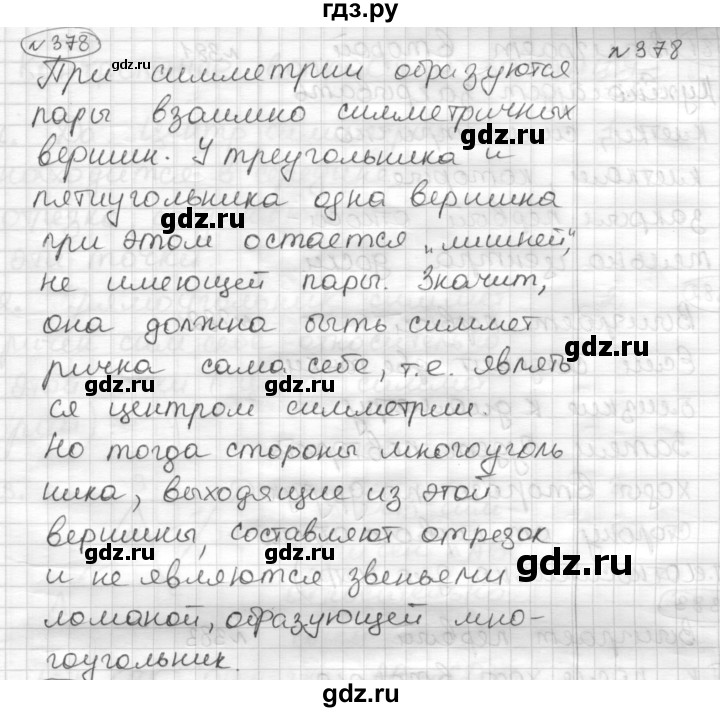 гдз.ру
№ 378
№ 378
При симметрии образуются
пары взаимно симметричных
вершин. У треугольника и
пятиугольника одна вершина
при этом остается „лишней,"
не имеющей пары. Значит,
она должна быть симмет
рична сама себе, т.е. являть
ся центром симметрии.
Но тогда стороны многоуголь
ника, выходящие из этой
вершины, составляют отрезок
и не являются звеньями
ломаной, образующей мно-
гоугольник.
gdz.ru
gdz.ru
gdz.ru
gdz.ru
gdz.ru
gdz.ru
gdz.ru
gdz.ru
gdz.ru
gdz.ru
gdz.ru
gdz.ru